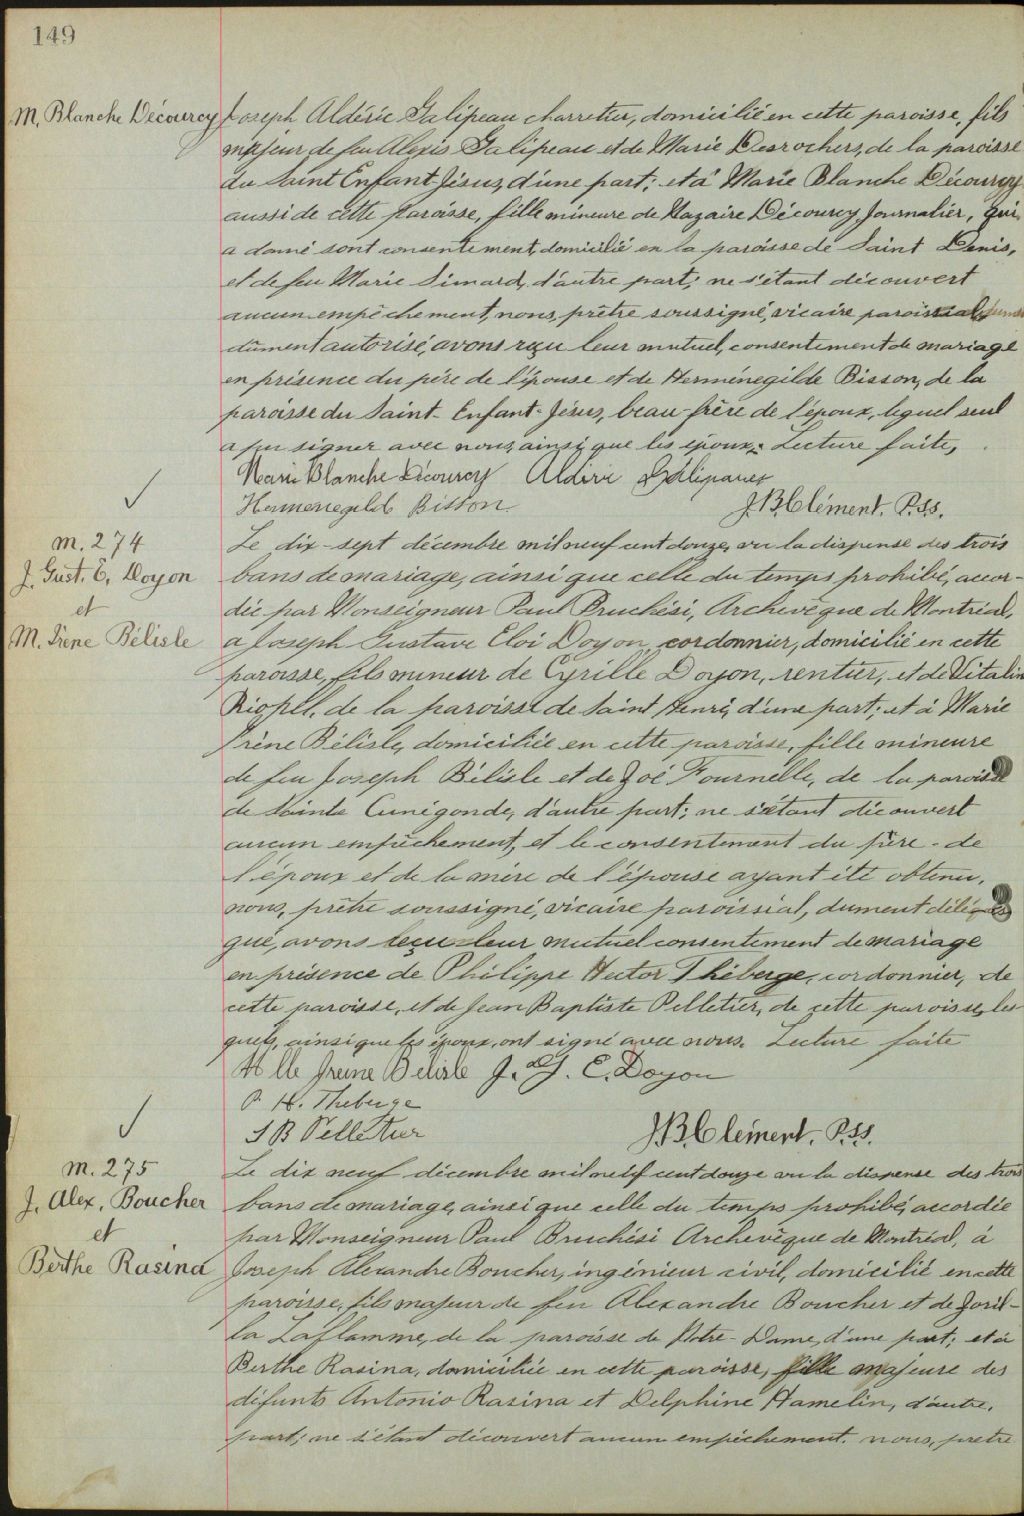 149
M. Blanche Décourcy
Joseph Aldéric Galipeau charretier, domicilié en cette paroisse, fils
majeur de feu Alexis Galipeau et de Marie Desrochers, de la paroisse
du Saint Enfant-Jésus, d'une part; et à Marie Blanche Décourcy
aussi de cette paroisse, fille mineure de Nazaire Décourcy Journalier, qui
a donné sont consentement, domicilié en la paroisse de Saint Denis,
et de feu Marie Simard, d'autre part; ne s'étant découvert
aucun empêchement, nous, prêtre soussigné, vicaire paroissial,
dûment autorisé, avons reçu leur mutuel consentement de mariage
en présence du père de l'épouse et de Herménegilde Bisson, de la
paroisse du Saint-Enfant-Jésus, beau-frère de l'époux, lequel seul
a pu signer avec nous, ainsi que les époux. Lecture faite,
Marie Blanche Décourcy Aldéric Galipeau
Hermenegilde Bisson
J.B. Clément. P.S.S.
m. 274
J. Gust. E. Doyon
et
M. Irène Bélisle
Le dix-sept décembre mil neuf cent douze, vu la dispense des trois
bans de mariage, ainsi que celle du temps prohibé, accor-
dée par Monseigneur Paul Bruchési, Archevêque de Montréal,
a Joseph Gustave Eloi Doyon, cordonnier, domicilié en cette
paroisse, fils mineur de Cyrille Doyon, rentier, et de Vitalin
Riopel, de la paroisse de Saint Henri, d'une part; et à Marie
Irène Bélisle, domiciliée en cette paroisse, fille mineure
de feu Joseph Bélisle et de Zoé Fournelle, de la paroisse
de Sainte Cunégonde, d'autre part; ne s'étant découvert
aucun empêchement, et le consentement du père de
l'époux et de la mère de l'épouse ayant été obtenu,
nous, prêtre soussigné, vicaire paroissial, dument délé
gué, avons reçu leur mutuel consentement de mariage
en présence de Philippe Hector Théberge, cordonnier, de
cette paroisse, et de Jean Baptiste Pelletier, de cette paroisse, les
quels, ainsi que les époux, ont signé avec nous. Lecture faite
Mlle Irène Bélisle J. G. E. Doyon
P. H. Theberge
J B Pelletier
J.B. Clément. P.S.S.
m. 275
J. Alex. Boucher
et
Berthe Rasina
Le dix neuf décembre mil neuf cent douze vu la dispense des trois
bans de mariage, ainsi que celle du temps prohibé, accordée
par Monseigneur Paul Bruchési Archevêque de Montréal, à
Joseph Alexandre Boucher, ingénieur civil, domicilié en cette
paroisse, fils majeur de feu Alexandre Boucher et de Zoril-
la Laflamme, de la paroisse de Notre-Dame, d'une part; et à
Berthe Rasina, domiciliée en cette paroisse, fille majeure des
défunts Antonio Rasina et Delphine Hamelin, d'autre,
part; ne s'étant découvert aucun empêchement. nous, pretre